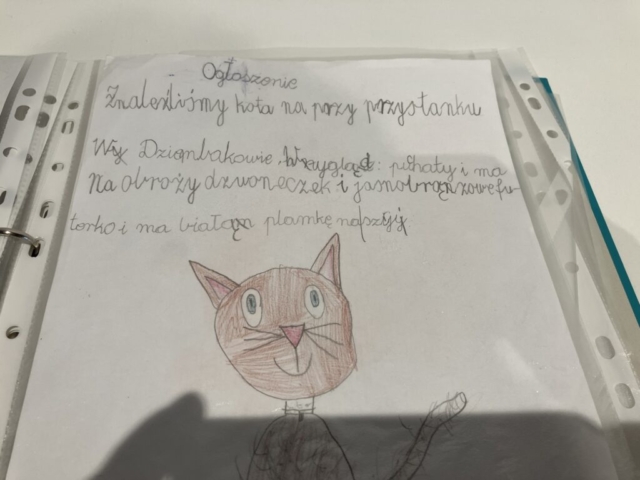 Ogłoszenie
Znaleźliśmy kota na przy przystanku
Wy Dziembakowie. Wygląd: puhaty i ma
Na obroży dzwoneczek i jasnobrązowe fu
terko i ma białą plamkę na szyji